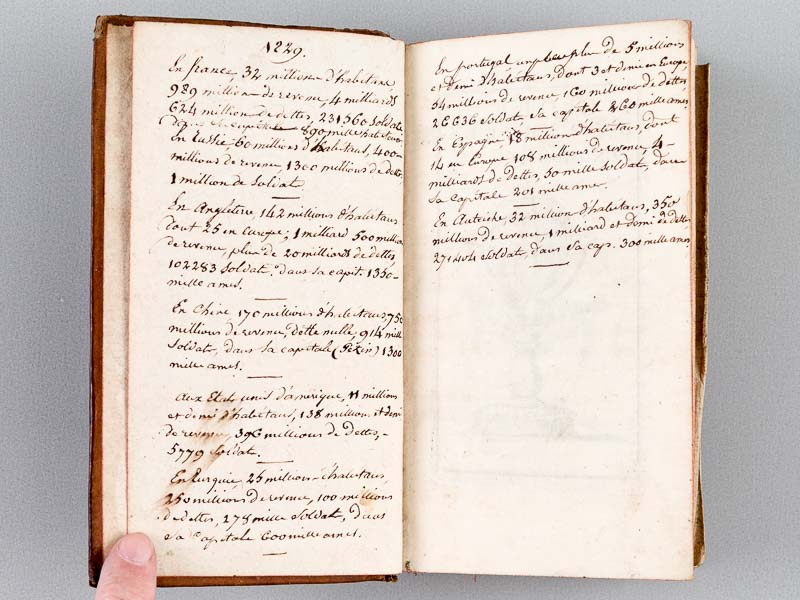 1829.
En france, 32 millions d'habitans
989 millions de revenu, 4 milliards
624 millions de dettes, 231560 Soldats
dans sa capitale 890 mille habitans
En Russie, 60 millions d'habitans, 400
millions de revenu, 1300 millions de dettes,
1 million de Soldat.
En Angleterre, 142 millions d'habitans
dont 25 en europe; 1 milliard 500 millions
de revenu, plus de 20 milliards de dettes,
102283 Soldat. dans sa capit. 1350
mille ames.
En Chine 170 millions d'habitans, 750
millions de revenu, dette nulle, 914 mille
Soldats, dans sa capitale (Pékin) 1300
mille ames.
aux Etats unis d'amérique, 11 millions
et demi d'habitans, 138 millions et demi
de revenu, 396 millions de Dettes,
5779 Soldat.
En Turquie, 25 millions d'habitans,
250 millions de revenu, 100 millions
de dettes, 278 mille Soldat, dans
sa Capitale 600 mille ames.
En portugal un peu plus de 5 millions
et demi d'habitans, dont 3 et demi en Europe,
54 millions de revenu, 160 millions de dettes,
26636 Soldat sa capitale 260 mille ames
En Espagne 18 millions d'habitans, dont
14 en Europe 108 millions de revenu, 4
milliards de Dettes, 50 mille Soldat, dans
sa Capitale 201 mille ame.
En Autriche, 32 million d'habitans, 350
millions de revenu, 1 milliard et demi de dettes
271404 Soldat, dans sa cap. 300 mille ames